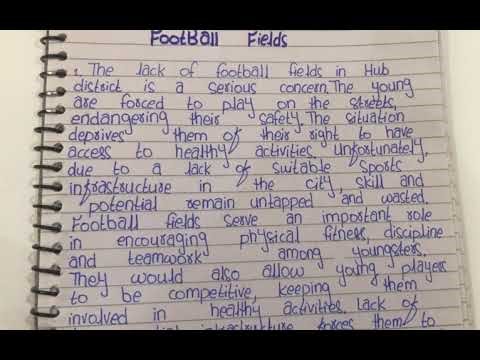 Football Fields
The lack of football fields in Hub
district is a serious concern. The young
are forced to play on the streets,
endangering their safety. The situation
deprives them of their right to have
access to healthy activities. Unfortunately,
due to a lack of suitable sports
infrastructure in the city, skill and
potential remain untapped and wasted.
Football fields serve an important role
in encouraging physical fitness, discipline
and teamwork among youngsters.
They would also allow young players
to be competitive, keeping them
involved in healthy activities. Lack of
infrastructure forces them to